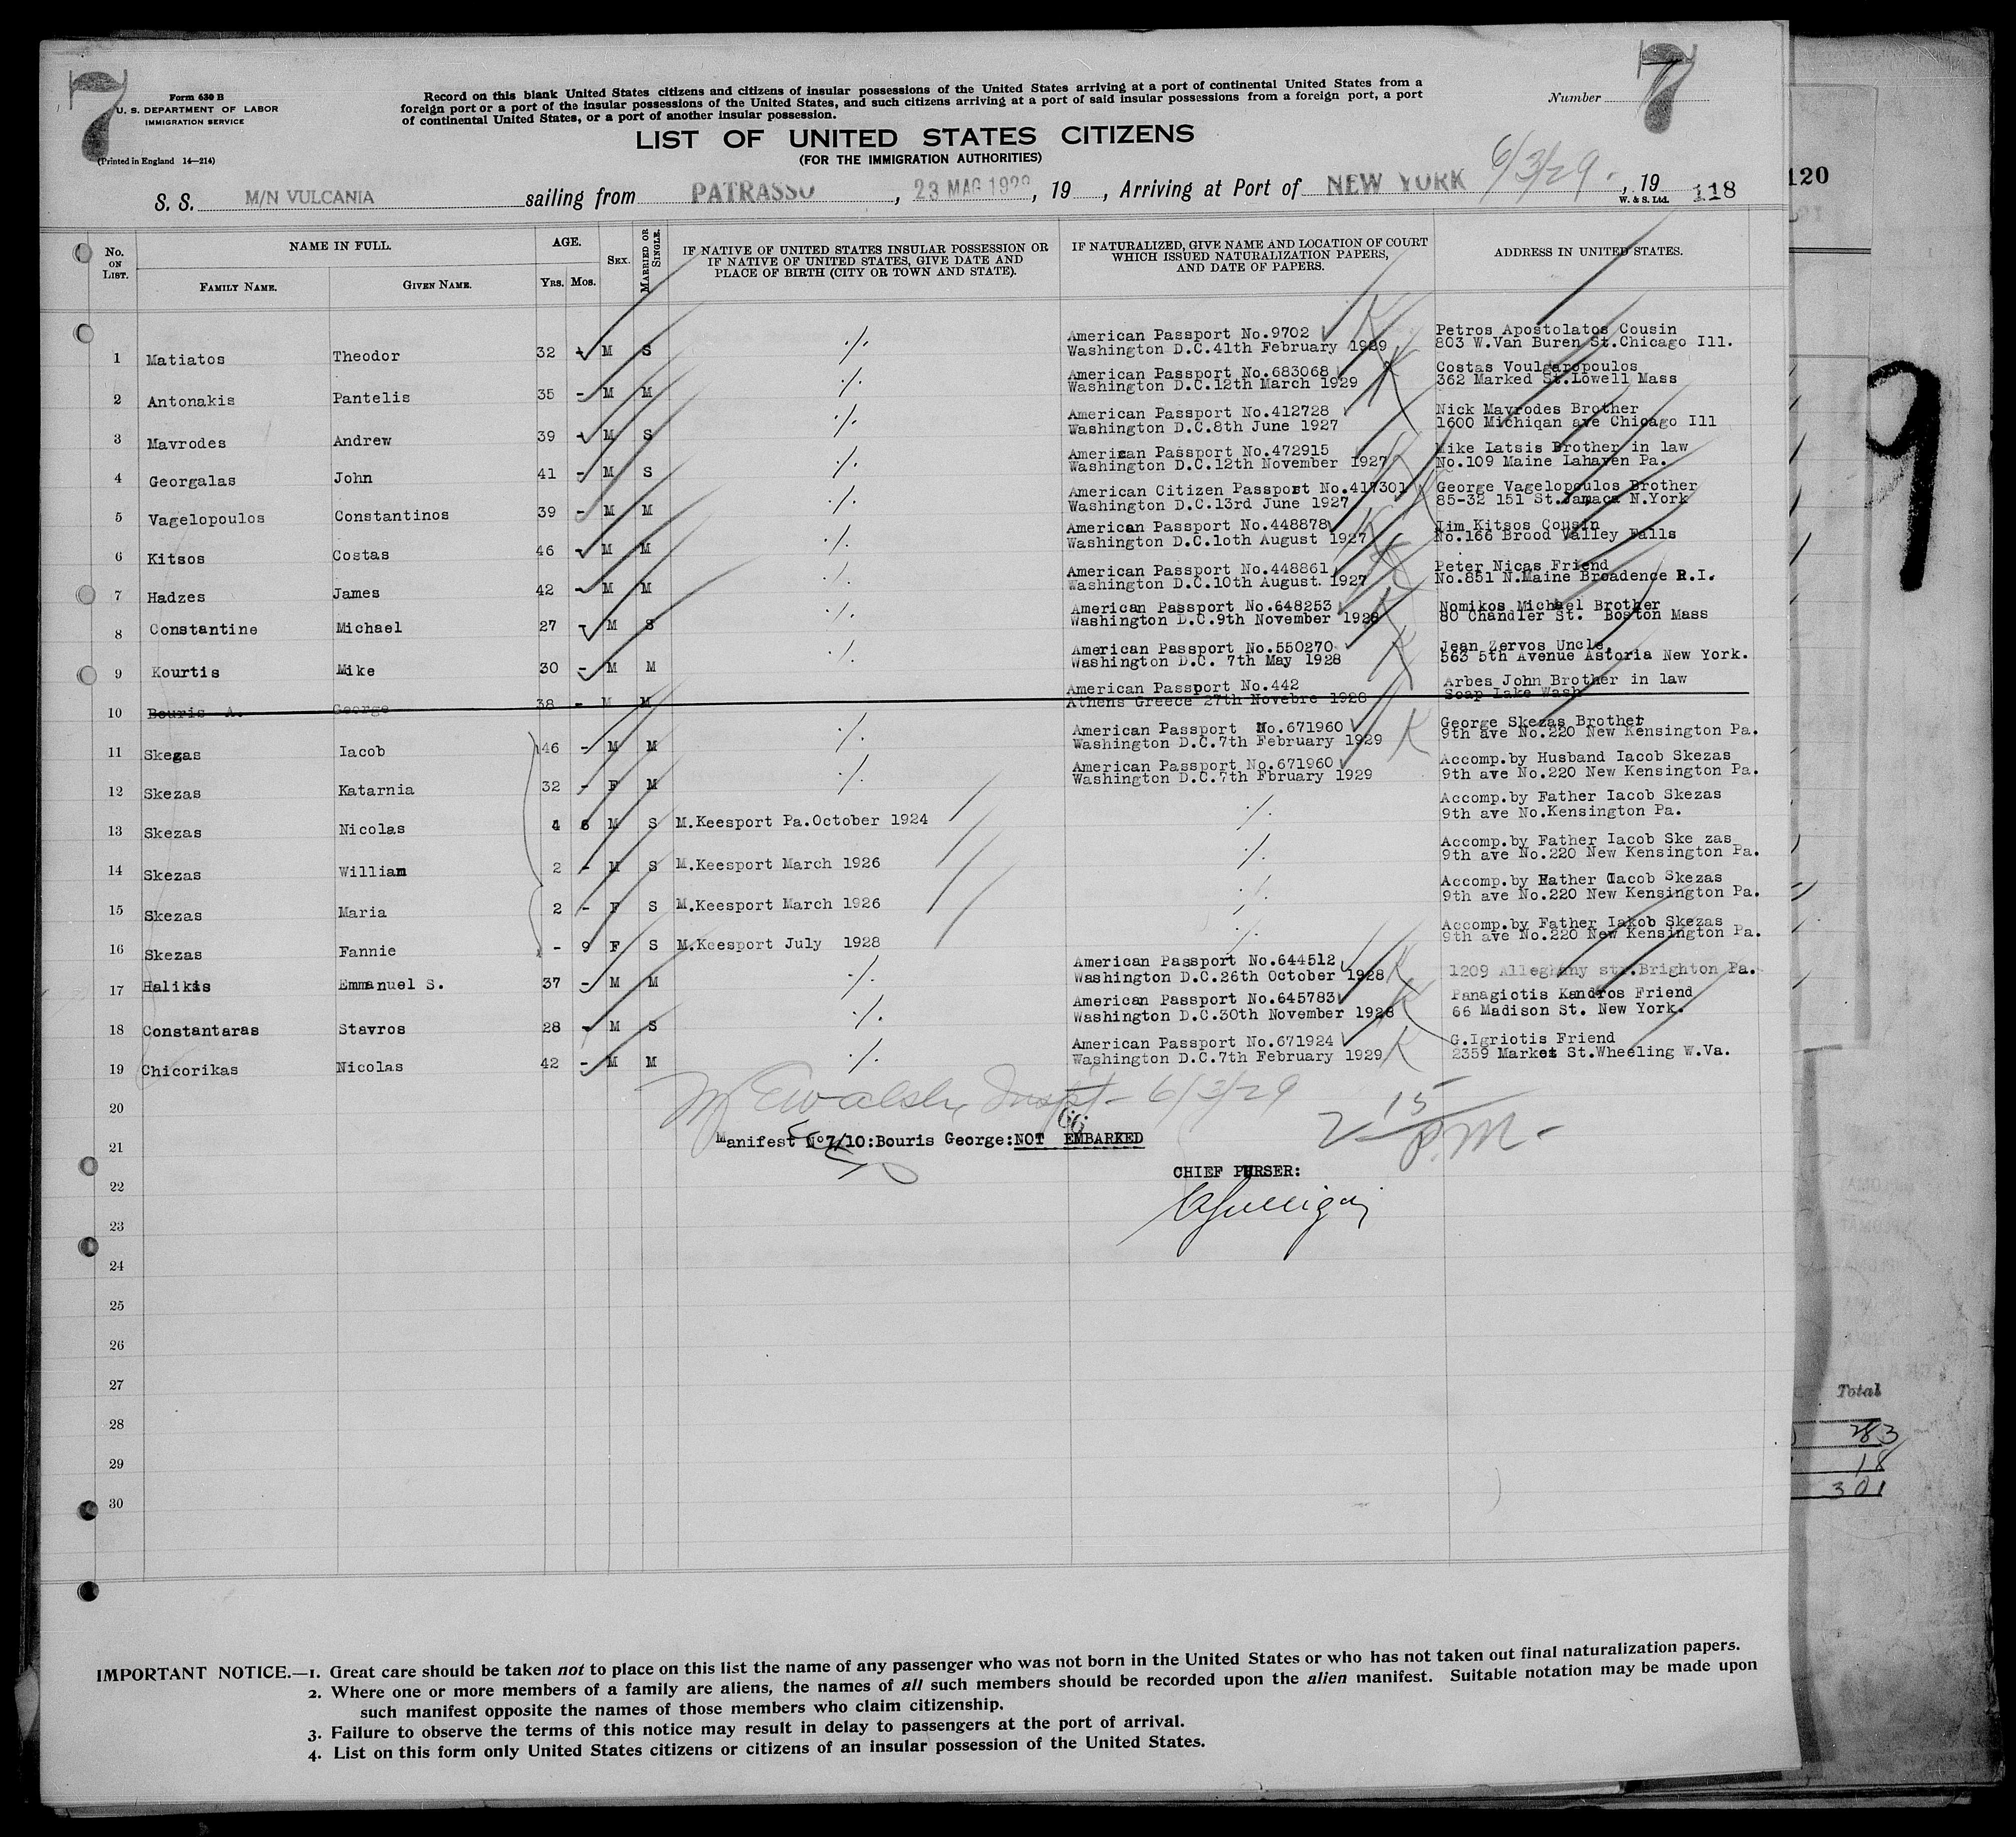 7
7
Form 630 B
U. S. DEPARTMENT OF LABOR
IMMIGRATION SERVICE
(Printed in England 14—214)
Record on this blank United States citizens and citizens of insular possessions of the United States arriving at a port of continental United States from a
foreign port or a port of the insular possessions of the United States, and such citizens arriving at a port of said insular possessions from a foreign port, a port
of continental United States, or a port of another insular possession.
Number
LIST OF UNITED STATES CITIZENS
(FOR THE IMMIGRATION AUTHORITIES)
S. S. M/N VULCANIA sailing from PATRASSO, 23 MAG 1929, 19 , Arriving at Port of NEW YORK 6/3/29. , 19
W. & S. Ltd.
118
120
No. ON LIST. NAME IN FULL. AGE. SEX. MARRIED OR SINGLE. IF NATIVE OF UNITED STATES INSULAR POSSESSION OR IF NATIVE OF UNITED STATES, GIVE DATE AND PLACE OF BIRTH (CITY OR TOWN AND STATE). IF NATURALIZED, GIVE NAME AND LOCATION OF COURT WHICH ISSUED NATURALIZATION PAPERS, AND DATE OF PAPERS. ADDRESS IN UNITED STATES.
FAMILY NAME. GIVEN NAME. YRS. MOS.
1 Matiatos Theodor 32 - M S ./. American Passport No.9702 Washington D.C.41th February 1929 Petros Apostolatos Cousin 803 W.Van Buren St.Chicago Ill.
2 Antonakis Pantelis 35 - M M ./. American Passport No.683068 Washington D.C.12th March 1929 Costas Voulgaropoulos 362 Marked St.Lowell Mass
3 Mavrodes Andrew 39 - M S ./. American Passport No.412728 Washington D.C.8th June 1927 Nick Mavrodes Brother 1600 Michiqan ave Chicago Ill
4 Georgalas John 41 - M S ./. American Passport No.472915 Washington D.C.12th November 1927 Mike Latsis Brother in law No.109 Maine Lahaven Pa.
5 Vagelopoulos Constantinos 39 - M M ./. American Citizen Passport No.417301 Washington D.C.13rd June 1927 George Vagelopoulos Brother 85-32 151 St.Jamaca N.York
6 Kitsos Costas 46 - M M ./. American Passport No.448878 Washington D.C.1oth August 1927 Jim Kitsos Cousin No.166 Brood Valley Falls
7 Hadzes James 42 - M M ./. American Passport No.448861 Washington D.C.10th August. 1927 Peter Nicas Friend No.851 N.Maine Broadence R.I.
8 Constantine Michael 27 - M S ./. American Passport No.648253 Washington D.C.9th November 1928 Nomikos Michael Brother 80 Chandler St. Boston Mass
9 Kourtis Mike 30 - M M ./. American Passport No.550270 Washington D.C. 7th May 1928 Jean Zervos Uncle, 563 5th Avenue Astoria New York.
10 Bouris A. George 38 - M M American Passport No.442 Athens Greece 27th Novebre 1928 Arbes John Brother in law Soap Lake Wash
11 Skegas Iacob 46 - M M ./. American Passport No.671960 Washington D.C.7th February 1929 George Skezas Brother 9th ave No.220 New Kensington Pa.
12 Skezas Katarnia 32 - F M ./. American Passport No.671960 Washington D.C.7th Fbruary 1929 Accomp.by Husband Iacob Skezas 9th ave No.220 New Kensington Pa.
13 Skezas Nicolas 4 6 M S M.Keesport Pa.October 1924 ./. Accomp.by Father Iacob Skezas 9th ave No.Kensington Pa.
14 Skezas William 2 - M S M.Keesport March 1926 ./. Accomp.by Father Iacob Ske zas 9th ave No.220 New Kensington Pa.
15 Skezas Maria 2 - F S M.Keesport March 1926 ./. Accomp.by Father Iacob Skezas 9th ave No.220 New Kensington Pa.
16 Skezas Fannie - 9 F S M.Keesport July 1928 ./. Accomp.by Father Iakob Skezas 9th ave No.220 New Kensington Pa.
17 Halikis Emmanuel S. 37 - M M ./. American Passport No.644512 Washington D.C.26th October 1928 1209 Alleghany str.Brighton Pa.
18 Constantaras Stavros 28 - M S ./. American Passport No.645783 Washington D.C.30th November 1928 Panagiotis Kandros Friend 66 Madison St. New York.
19 Chicorikas Nicolas 42 - M M ./. American Passport No.671924 Washington D.C.7th February 1929 G.Igriotis Friend 2359 Market St.Wheeling W.Va.
20 Walsh Inspt- 6/3/29
2 15 P.M-
21 Manifest No7/10:Bouris George:NOT EMBARKED
CHIEF PURSER:
22
23
24
25
26
27
28
29
30
9
Total
283
18
301
IMPORTANT NOTICE.—1. Great care should be taken not to place on this list the name of any passenger who was not born in the United States or who has not taken out final naturalization papers.
2. Where one or more members of a family are aliens, the names of all such members should be recorded upon the alien manifest. Suitable notation may be made upon
such manifest opposite the names of those members who claim citizenship.
3. Failure to observe the terms of this notice may result in delay to passengers at the port of arrival.
4. List on this form only United States citizens or citizens of an insular possession of the United States.